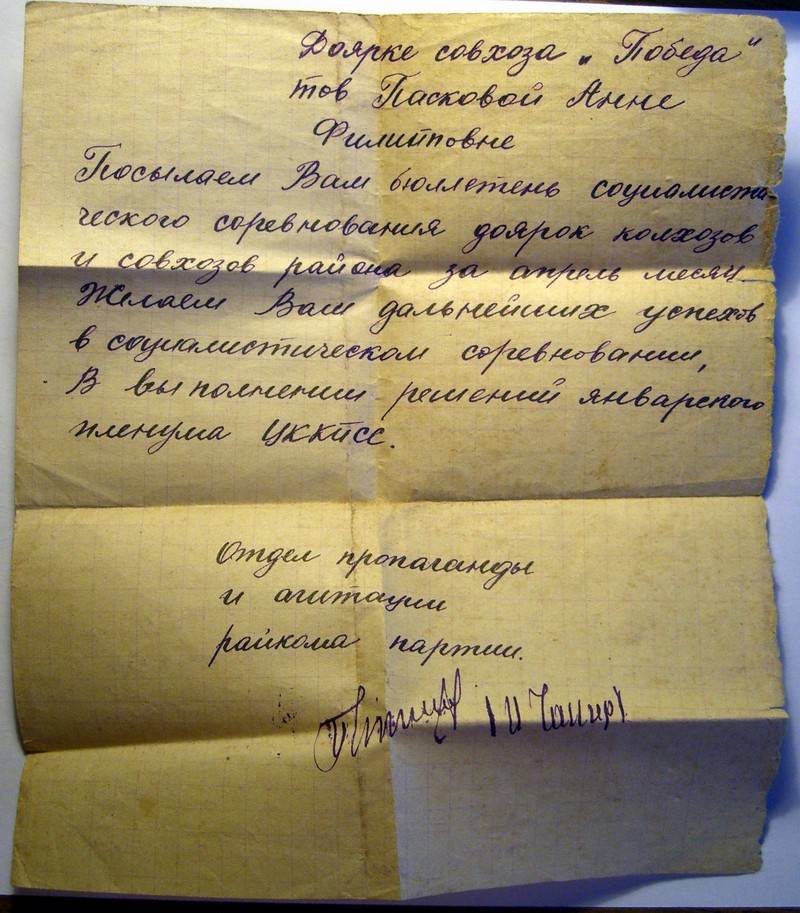 Доярке совхоза „Победа"
тов Пасковой Анне
Филипповне
Посылаем Вам бюллетень социалисти-
ческого соревнования доярок колхозов
и совхозов района за апрель месяц.
Желаем Вам дальнейших успехов
в социалистическом соревновании,
В выполнении решений январского
пленума ЦККПСС.
Отдел пропаганды
и агитации
райкома партии.